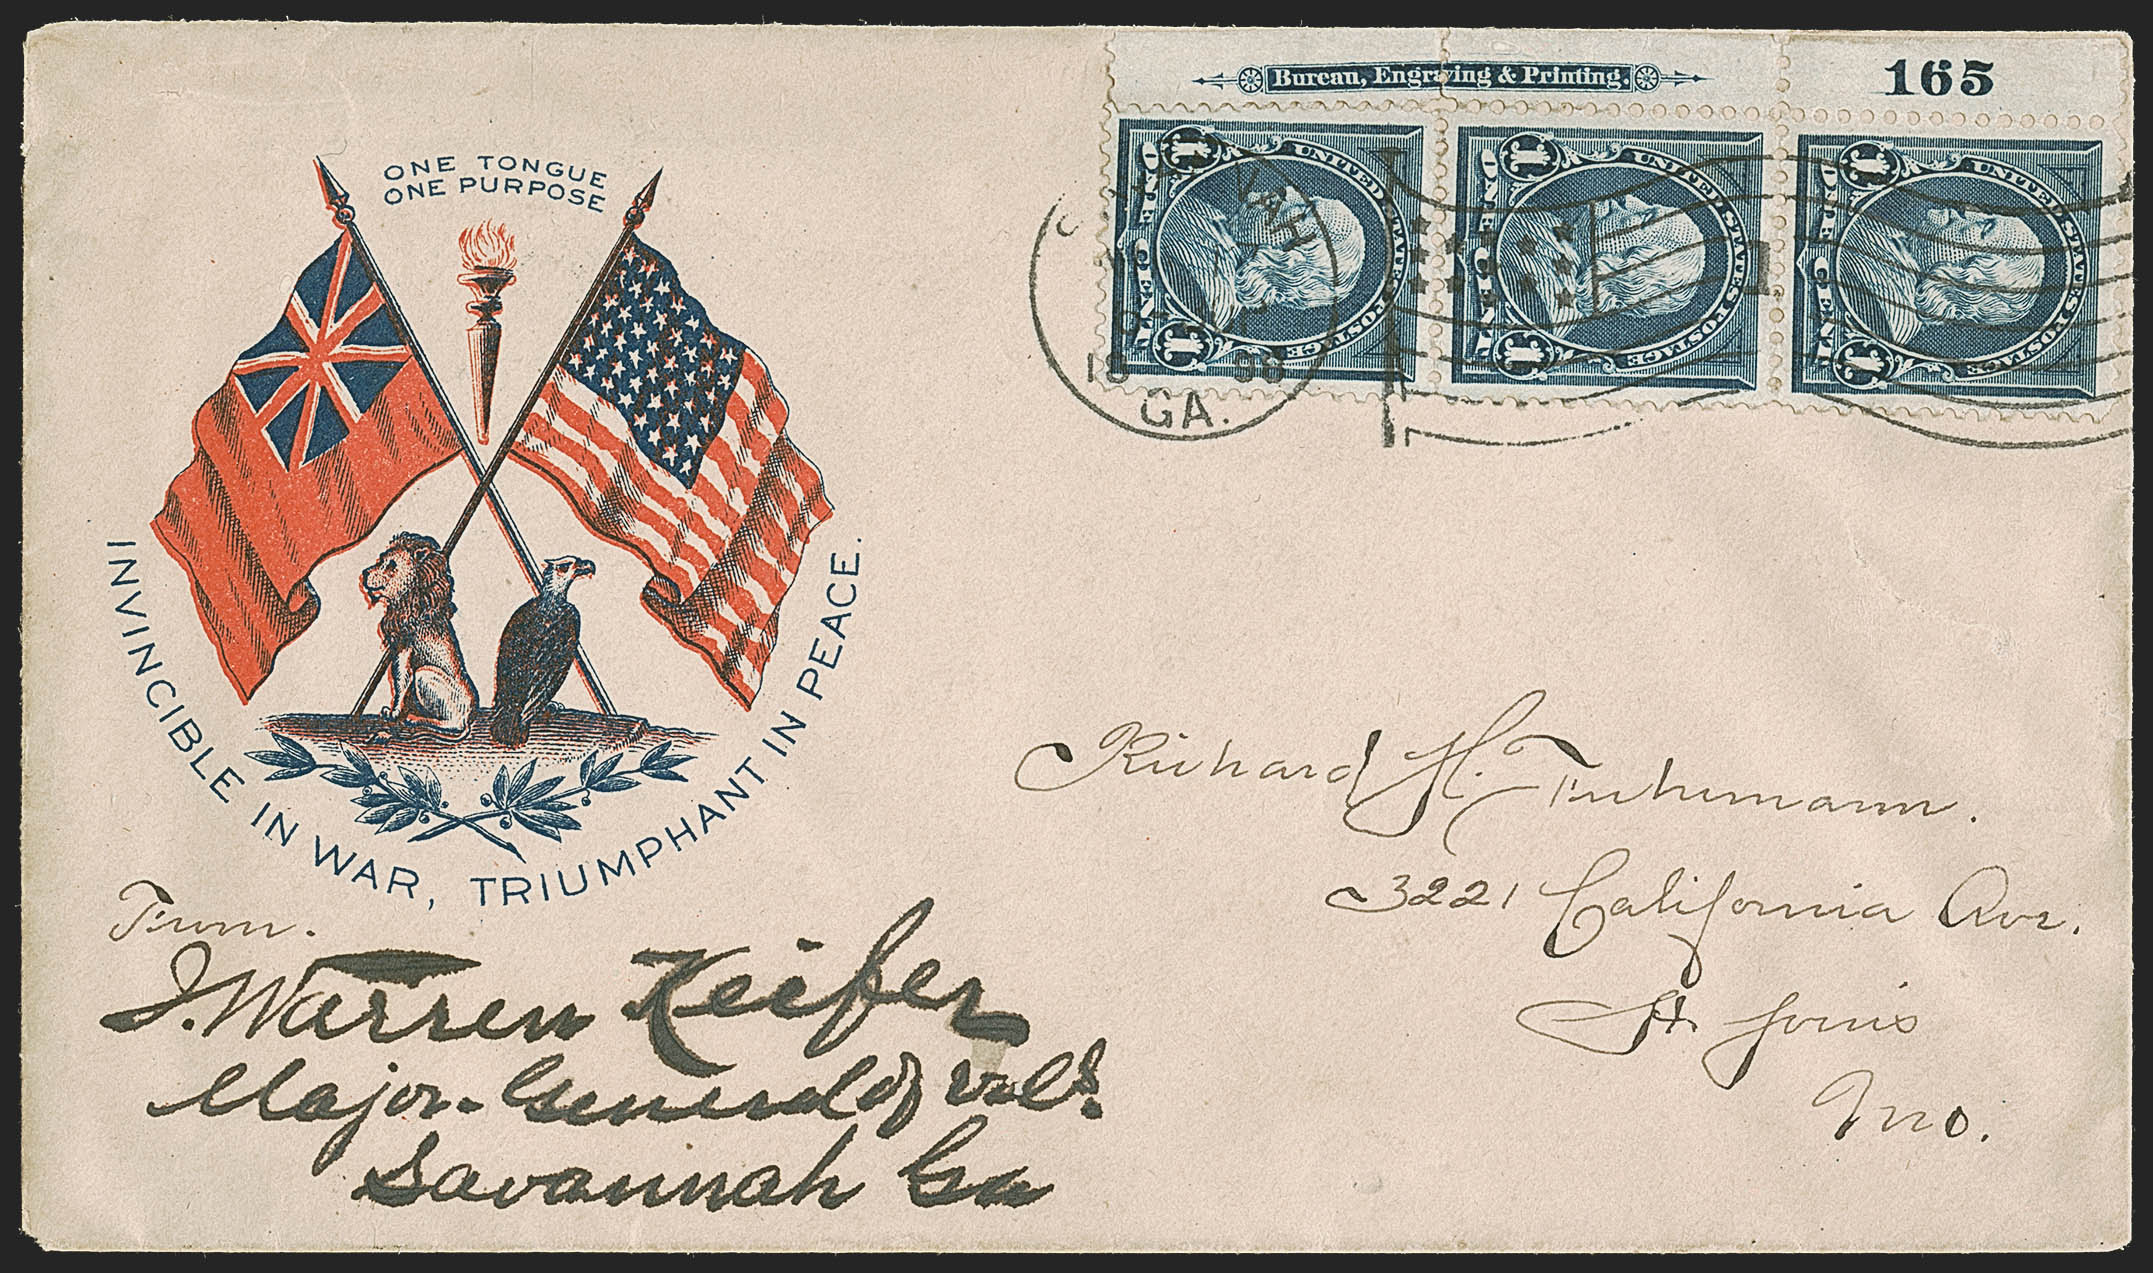 Bureau, Engraving & Printing.
165
ONE TONGUE
ONE PURPOSE
INVINCIBLE IN WAR, TRIUMPHANT IN PEACE.
1 UNITED STATES POSTAGE ONE CENT 1
1 UNITED STATES POSTAGE ONE CENT 1
1 UNITED STATES POSTAGE ONE CENT 1
98
GA.
Richard H. Fuhrmann.
3221 California Ave.
St Louis
Mo.
From.
J. Warren Keifer
Major-General of Vols.
Savannah Ga